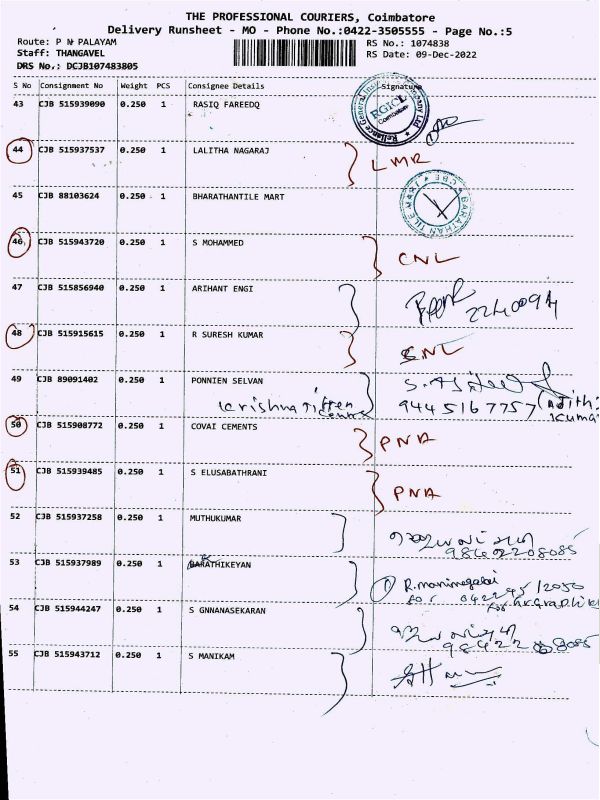 THE PROFESSIONAL COURIERS, Coimbatore
Delivery Runsheet - MO - Phone No.:0422-3505555 - Page No.:5
Route: P N PALAYAM
RS No.: 1074838
Staff: THANGAVEL
RS Date: 09-Dec-2022
DRS No.: DCJB107483805
S No Consignment No Weight PCS Consignee Details Signature
43 CJB 515939090 0.250 1 RASIQ FAREEDQ
Reliance General Insurance Company Ltd
RGICL
Coimbatore
44 CJB 515937537 0.250 1 LALITHA NAGARAJ LMR
45 CJB 88103624 0.250 1 BHARATHANTILE MART
BARATHAN TILE MART CBE
46 CJB 515943720 0.250 1 S MOHAMMED CNL
47 CJB 515856940 0.250 1 ARIHANT ENGI
48 CJB 515915615 0.250 1 R SURESH KUMAR CNL
49 CJB 89091402 0.250 1 PONNIEN SELVAN
Krishna Tiffen
9445167757
50 CJB 515908772 0.250 1 COVAI CEMENTS PNA
51 CJB 515939485 0.250 1 S ELUSABATHRANI PNA
52 CJB 515937258 0.250 1 MUTHUKUMAR
53 CJB 515937989 0.250 1 BARATHIKEYAN
54 CJB 515944247 0.250 1 S GNNANASEKARAN
55 CJB 515943712 0.250 1 S MANIKAM